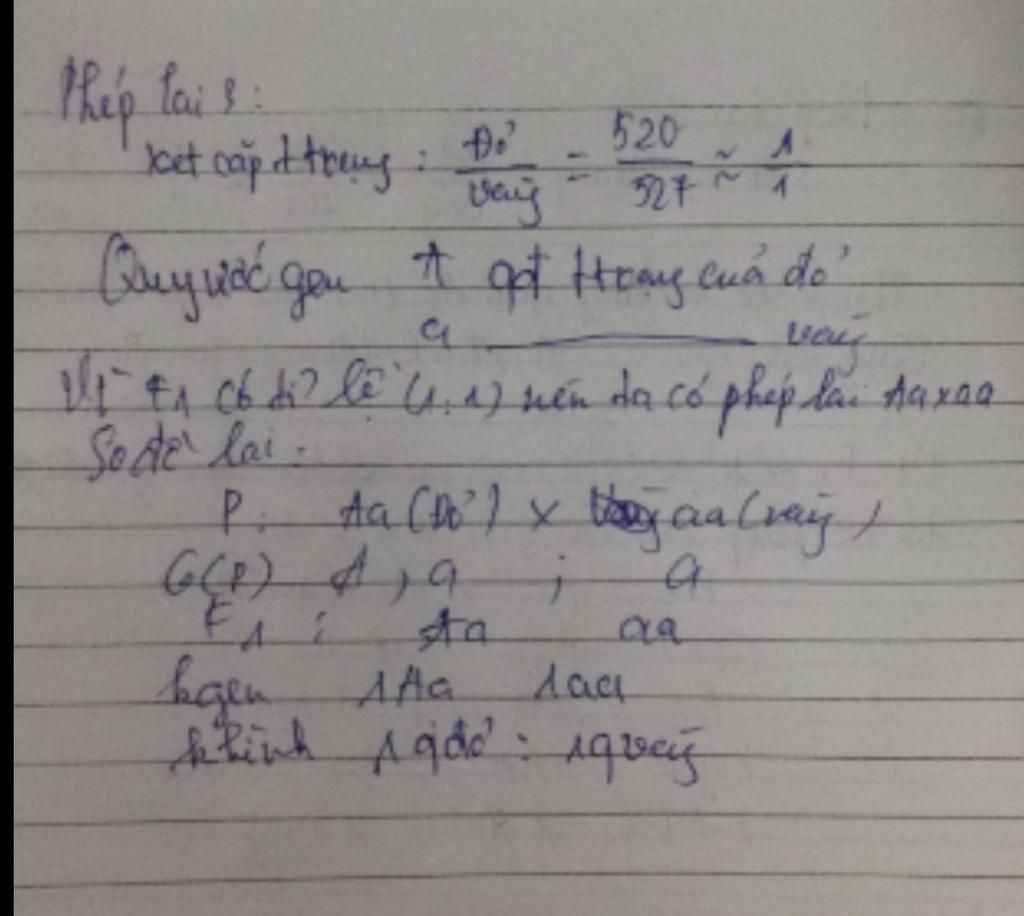 Phép lai 3:
Xét cặp ttrạng : Đỏ/vàng = 520/527 ≈ 1/1
Quy ước gen A qđ ttrạng quả đỏ
a ——— vàng
Vì F1 có tỉ lệ (1:1) nên ta có phép lai Aaxaa
Sơ đồ lai:
P: Aa (Đỏ) x aa (vàng)
G(P) A, a ; a
F1 : Aa aa
kgen 1Aa 1aa
khình 1qđỏ : 1qvàng